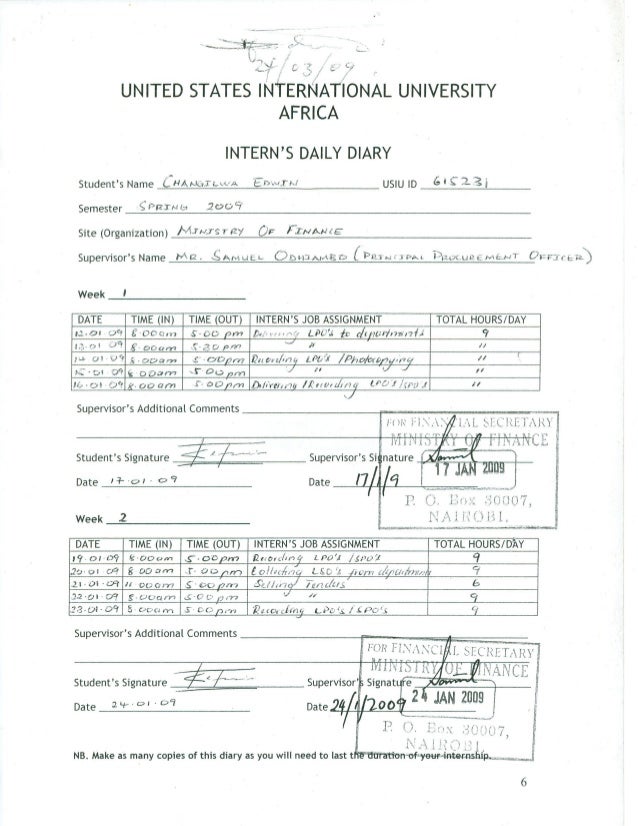 24/03/09
UNITED STATES INTERNATIONAL UNIVERSITY
AFRICA
INTERN'S DAILY DIARY
Student's Name CHANGILWA EDWIN USIU ID 615231
Semester SPRING 2009
Site (Organization) MINISTRY OF FINANCE
Supervisor's Name MR. SAMUEL ODHIAMBO (PRINCIPAL PROCUREMENT OFFICER)
Week 1
DATE TIME (IN) TIME (OUT) INTERN'S JOB ASSIGNMENT TOTAL HOURS/DAY
12.01 09 8.00am 5.00 pm Delivering LPO's to departments 9
13.01 09 8.00am 5.20 pm " "
14 01.09 8.00am 5.00pm Recording LPO's /Photocopying "
15.01 09 8 00am 5 00pm " "
16.01.09 8.00am 5.00pm Delivering /Recording LPO's/SPO's "
Supervisor's Additional Comments
FOR FINANCIAL SECRETARY
MINISTRY OF FINANCE
Student's Signature Supervisor's Signature
17 JAN 2009
Date 17.01.09 Date 17/1/9
P. O. Box 30007,
NAIROBI.
Week 2
DATE TIME (IN) TIME (OUT) INTERN'S JOB ASSIGNMENT TOTAL HOURS/DAY
19.01 09 8.00am 5.00pm Recording LPO's /SPO's 9
20.01 09 8 00am 5.00pm Collecting LSO's from departments 9
21.01.09 11 00am 5 00pm Selling Tenders 6
22.01.09 8.00am 5.00pm " 9
23.01.09 8 00am 5.00pm Recording LPO's / SPO's 9
Supervisor's Additional Comments
FOR FINANCIAL SECRETARY
MINISTRY OF FINANCE
Student's Signature Supervisor's Signature
24 JAN 2009
Date 24.01.09 Date 24/1/2009
P. O. Box 30007,
NAIROBI.
NB. Make as many copies of this diary as you will need to last the duration of your internship.
6